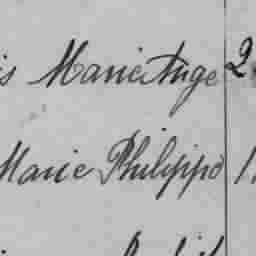 is Marie Ange 2
Marie Philippe 1